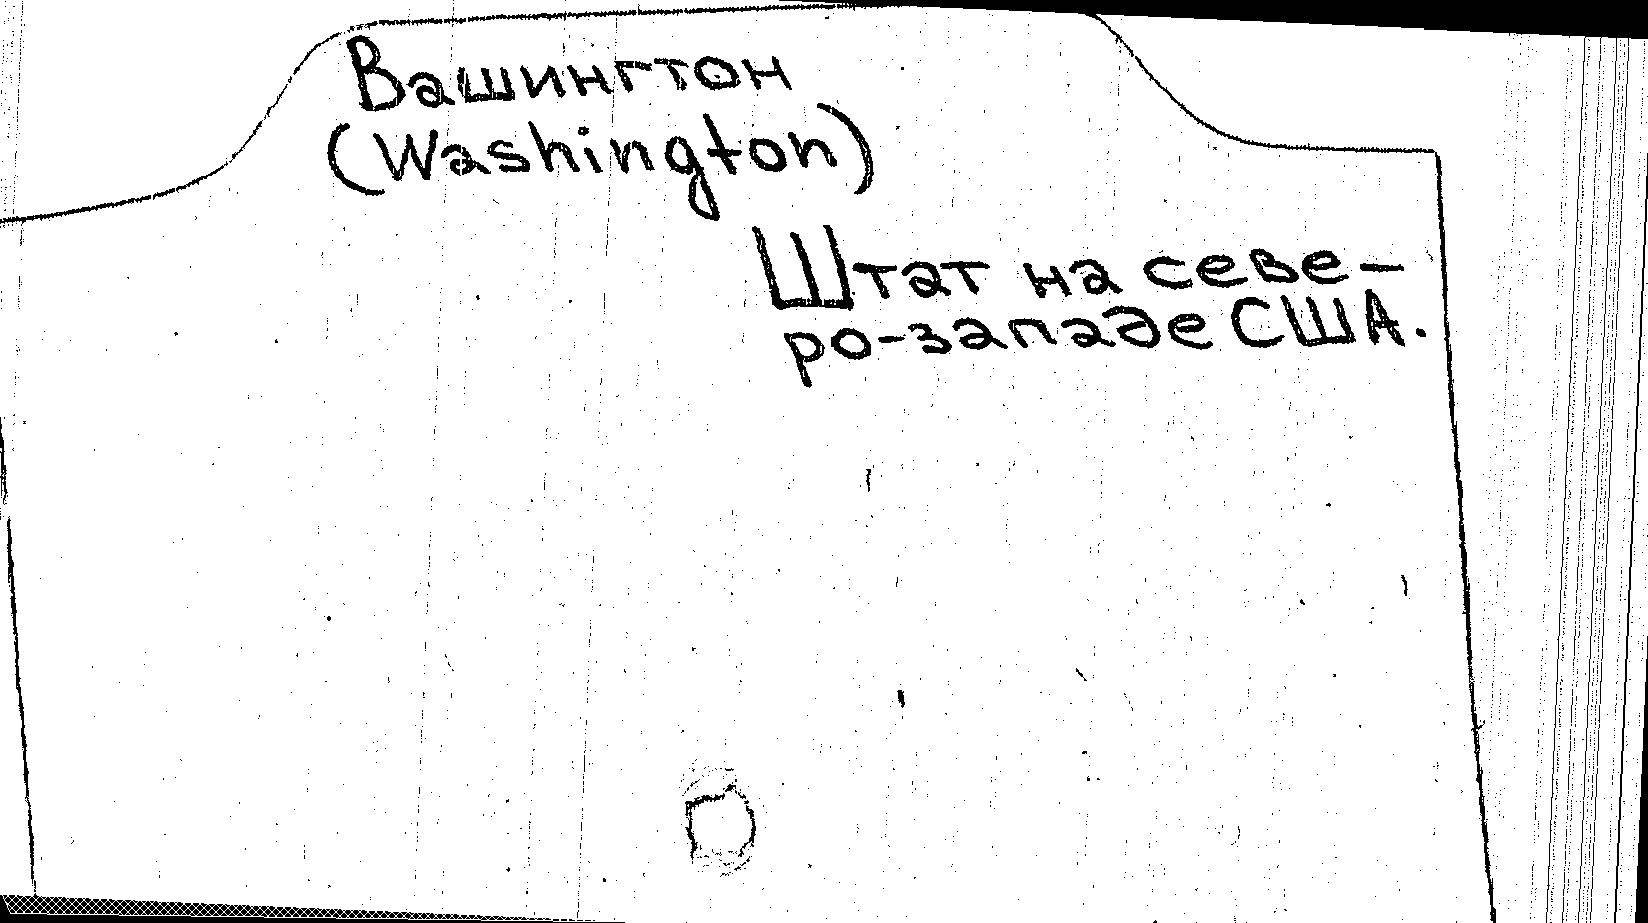 Вашингтон
(Washington)
Штат на севе-
ро-западе США.